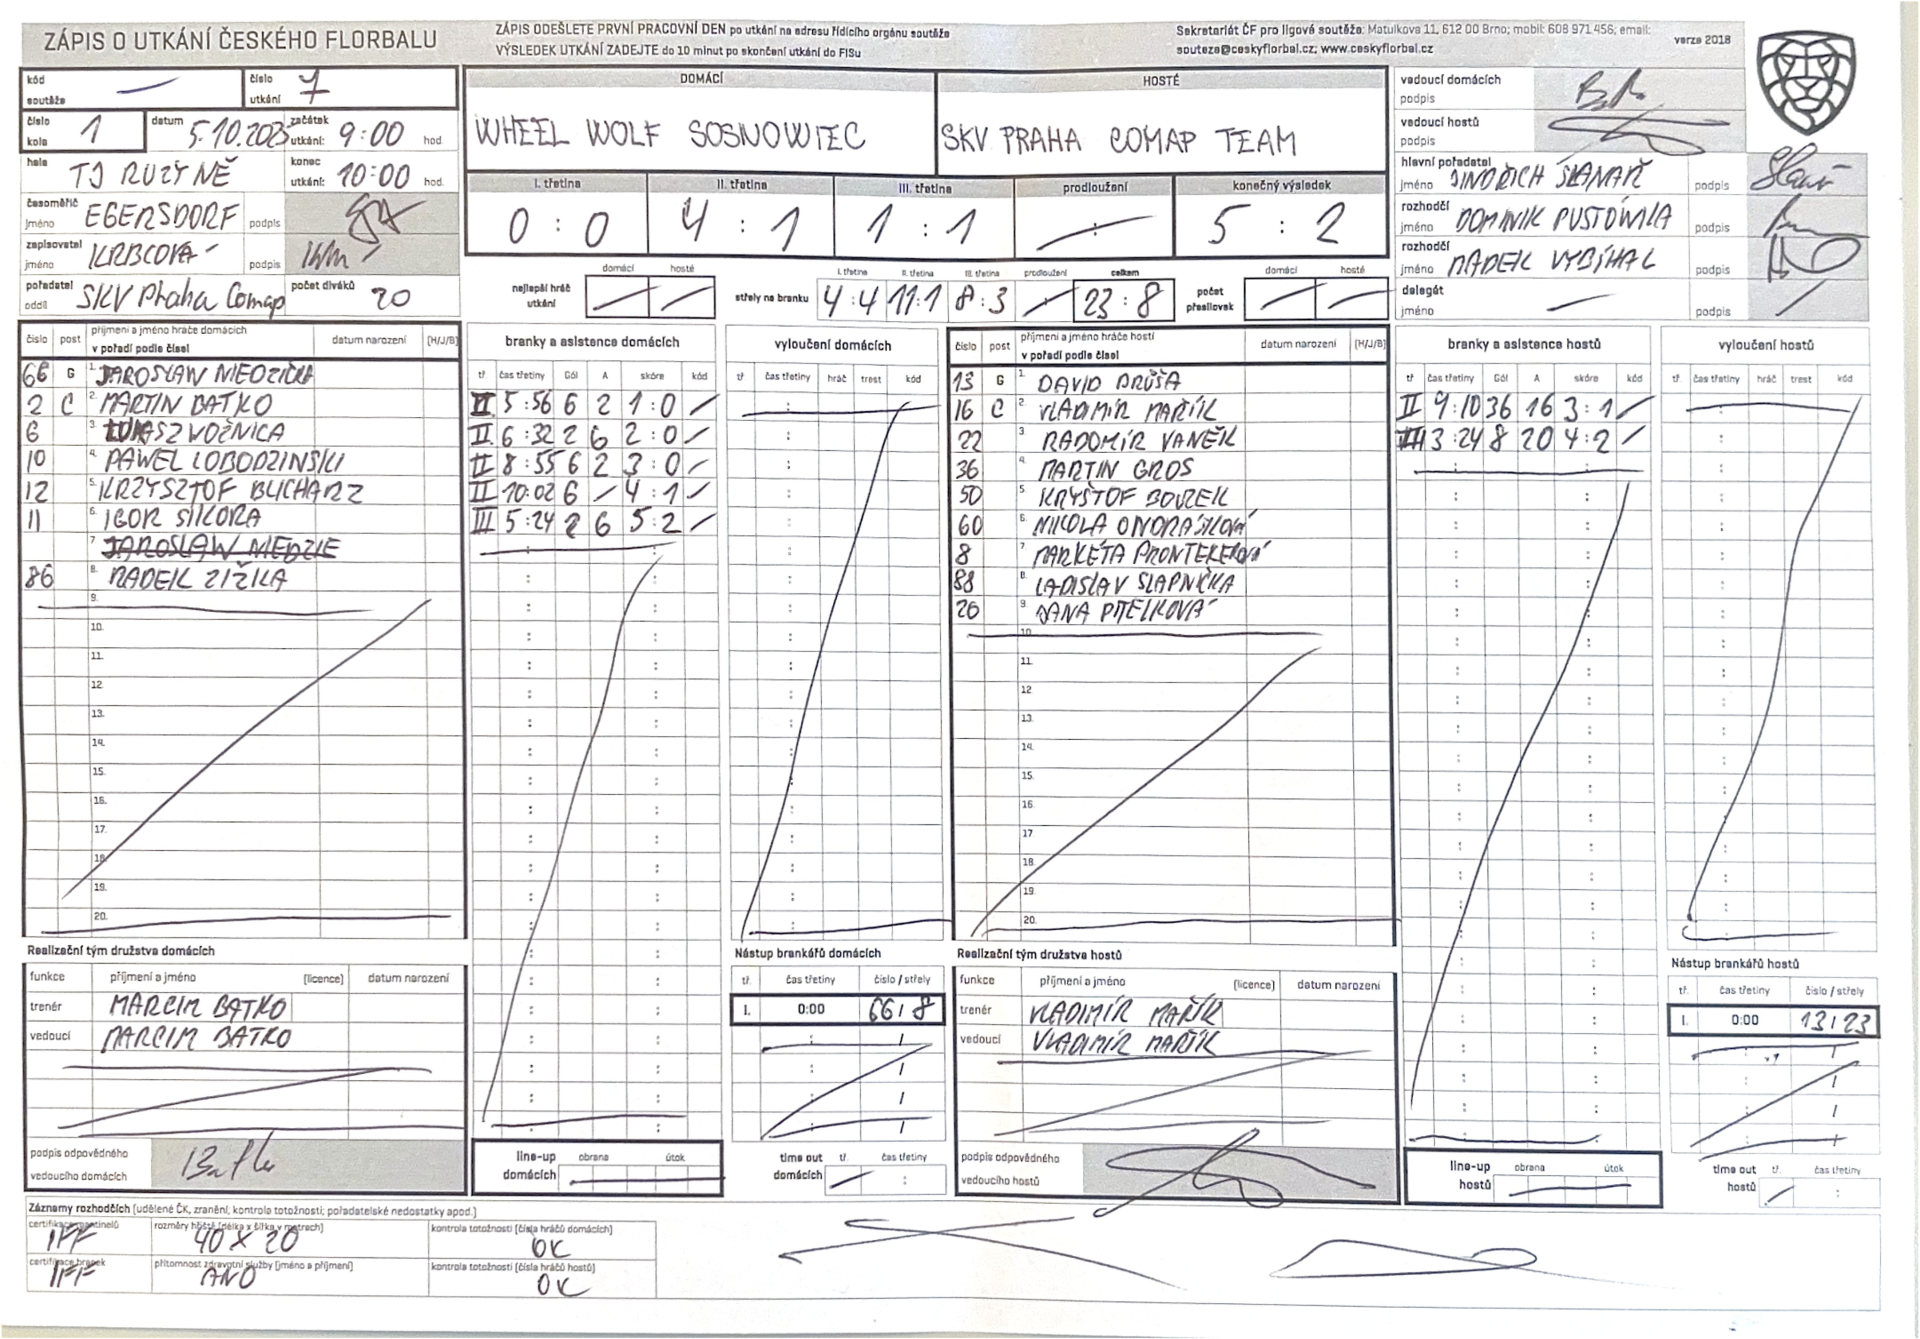 ZÁPIS O UTKÁNÍ ČESKÉHO FLORBALU
ZÁPIS ODEŠLETE PRVNÍ PRACOVNÍ DEN po utkání na adresu řídícího orgánu soutěže
VÝSLEDEK UTKÁNÍ ZADEJTE do 10 minut po skončení utkání do FISu
Sekretariát ČF pro ligové soutěže: Matulkova 11, 612 00 Brno; mobil: 608 971 456; email:
souteze@ceskyflorbal.cz; www.ceskyflorbal.cz
verze 2018
kód soutěže
číslo utkání 7
číslo kola 1 datum 5.10.2023 začátek utkání: 9:00 hod.
hala TJ RUZYNĚ konec utkání: 10:00 hod.
časoměřič jméno EGERSDORF podpis
zapisovatel jméno KRBCOVÁ podpis
pořadatel oddíl SKV Praha Comap počet diváků 20
DOMÁCÍ HOSTÉ
WHEEL WOLF SOSNOWIEC SKV PRAHA COMAP TEAM
I. třetina II. třetina III. třetina prodloužení konečný výsledek
0 : 0 4 : 1 1 : 1 : 5 : 2
domácí hosté I. třetina II. třetina III. třetina prodloužení celkem domácí hosté
nejlepší hráč utkání střely na branku 4:4 11:1 8:3 23:8 počet přesilovek
vedoucí domácích podpis
vedoucí hostů podpis
hlavní pořadatel jméno JINDŘICH ŠLANAŘ podpis
rozhodčí jméno DOMINIK PUSTÓWKA podpis
rozhodčí jméno RADEK VYBÍHAL podpis
delegát jméno podpis
číslo post příjmení a jméno hráče domácích v pořadí podle čísel datum narození (H/J/B)
66 G 1. JAROSLAW NIEDZIČKA
2 C 2. MARTIN BATKO
6 3. LUKASZ WOŹNICA
10 4. PAWEL LOBODZINSKI
12 5. KRZYSZTOF BUCHARZ
11 6. IGOR SIKORA
7. JAROSLAW NIEDZIE
86 8. RADEK ZIŽKA
9.
10.
11.
12.
13.
14.
15.
16.
17.
18.
19.
20.
branky a asistence domácích
tř. čas třetiny Gól A skóre kód
II 5:56 6 2 1:0
II 6:32 2 6 2:0
II 8:55 6 2 3:0
II 10:02 6 4:1
III 5:24 2 6 5:2
vyloučení domácích
tř. čas třetiny hráč trest kód
číslo post příjmení a jméno hráče hostí v pořadí podle čísel datum narození (H/J/B)
13 G 1. DAVID DRŮŠA
16 C 2. VLADIMÍR MAŘÍK
22 3. RADOMÍR VANĚK
36 4. MARTIN GROS
50 5. KRYŠTOF BOUZEK
60 6. NIKOLA ONDRÁŠKOVÁ
8 7. MARKÉTA PRONTEKEROVÁ
88 8. LADISLAV SLAPNIČKA
20 9. JANA PITELKOVÁ
10.
11.
12.
13.
14.
15.
16.
17.
18.
19.
20.
branky a asistence hostů
tř. čas třetiny Gól A skóre kód
II 9:10 36 16 3:1
III 3:24 8 20 4:2
vyloučení hostů
tř. čas třetiny hráč trest kód
Realizační tým družstva domácích
funkce příjmení a jméno (licence) datum narození
trenér MARCIM BATKO
vedoucí MARCIM BATKO
podpis odpovědného vedoucího domácích
line-up domácích obrana útok
Nástup brankářů domácích
tř. čas třetiny číslo / střely
I. 0:00 66 / 8
time out domácích tř. čas třetiny
Realizační tým družstva hostů
funkce příjmení a jméno (licence) datum narození
trenér VLADIMÍR MAŘÍK
vedoucí VLADIMÍR MAŘÍK
podpis odpovědného vedoucího hostů
line-up hostů obrana útok
Nástup brankářů hostů
tř. čas třetiny číslo / střely
I. 0:00 13 / 23
time out hostů tř. čas třetiny
Záznamy rozhodčích (udělené ČK, zranění, kontrola totožnosti, pořadatelské nedostatky apod.)
certifikace mantinelů IFF rozměry hřiště (délka x šířka v metrech) 40 X 20 kontrola totožnosti (čísla hráčů domácích) OK
certifikace branek IFF přítomnost zdravotní služby (jméno a příjmení) ANO kontrola totožnosti (čísla hráčů hostů) OK